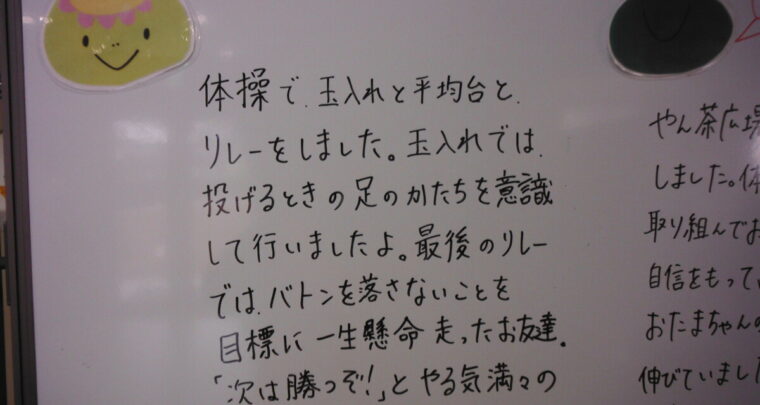 体操で、玉入れと平均台と、
リレーをしました。玉入れでは、
投げるときの足のかたちを意識
して行いましたよ。最後のリレー
では、バトンを落さないことを
目標に一生懸命走ったお友達。
「次は勝つぞ！」とやる気満々の
やん茶広場
しました。体
取り組んでお
自信をもって、
おたまちゃんの
伸びていました